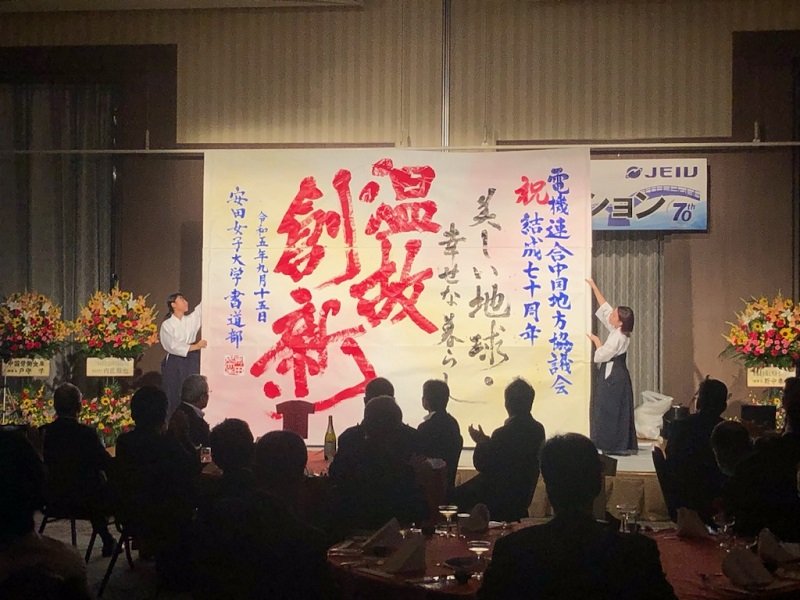 電機連合中国地方協議会
祝
結成七十周年
美しい地球・
幸せな暮らし
温故
創新
令和五年九月十五日
安田女子大学書道部
JEIU
ション
70th